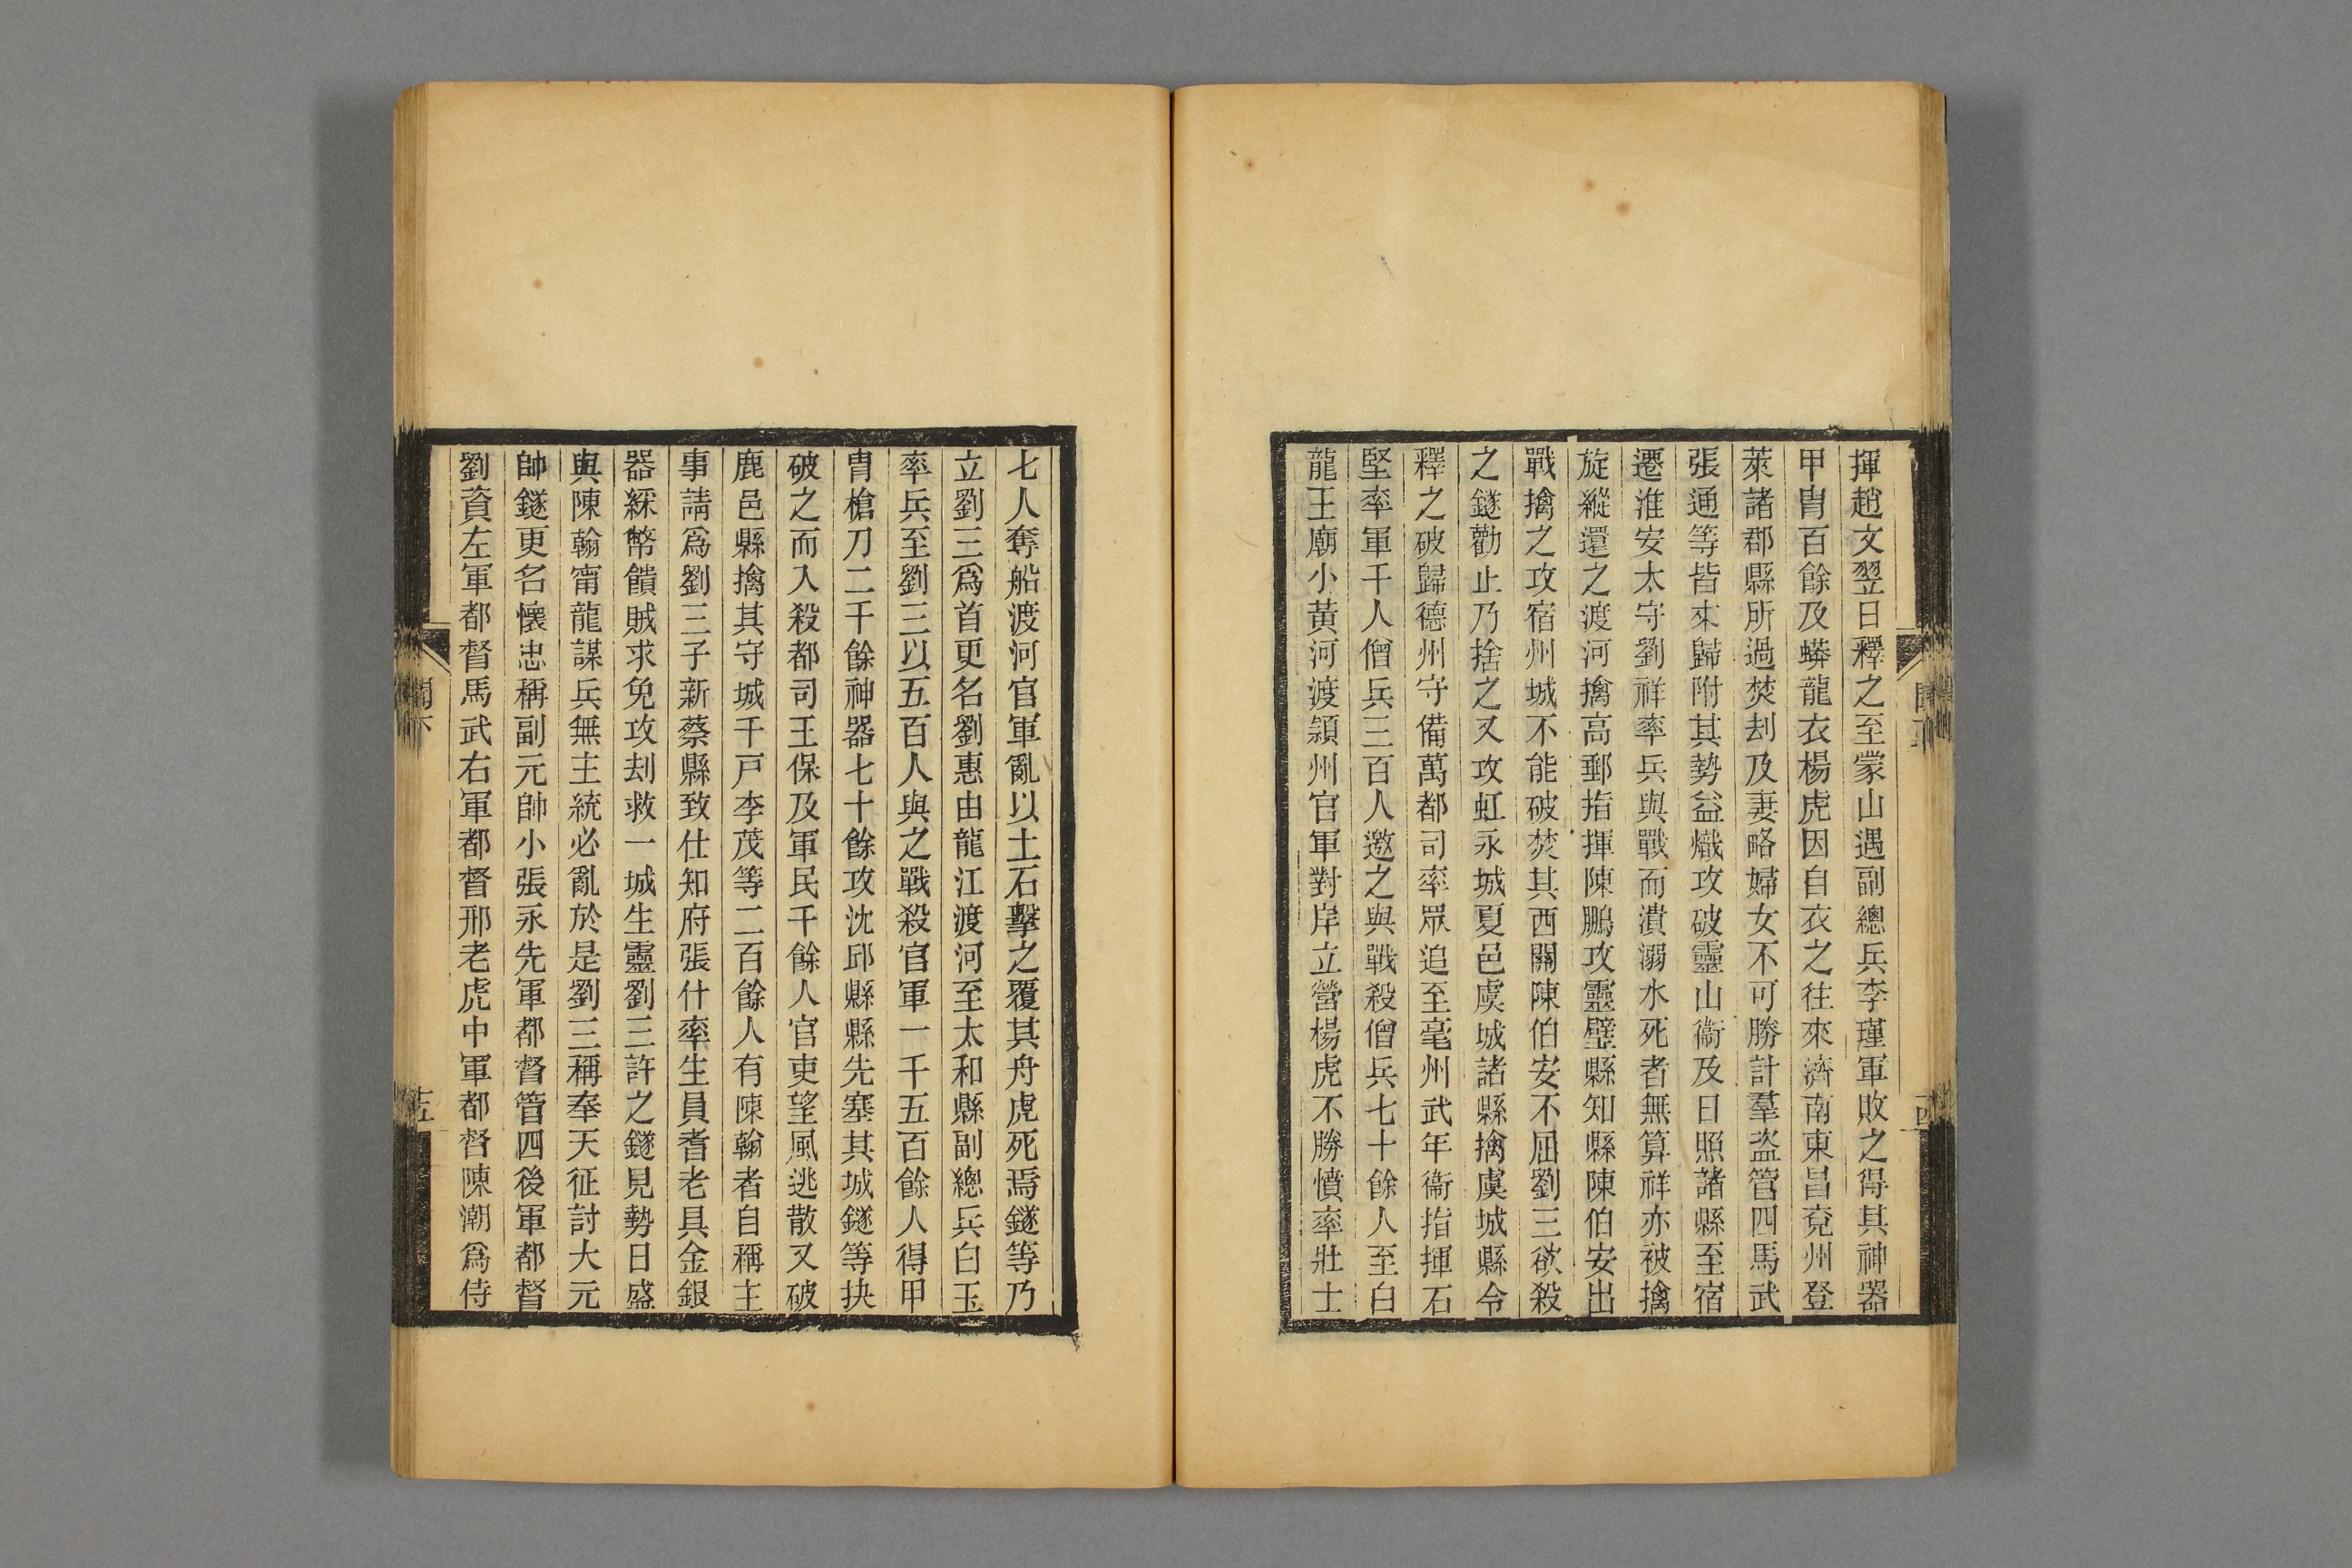 揮趙文翌日釋之至蒙山遇副總兵李瑾軍敗之得其神器
甲胄百餘及蟒龍衣楊虎因自衣之往來濟南東昌兗州登
萊諸郡縣所過焚刦及妻略婦女不可勝計羣盗管四馬武
張通等皆來歸附其勢益熾攻破靈山衞及日照諸縣至宿
遷淮安太守劉祥率兵與戰而潰溺水死者無算祥亦被擒
旋縱還之渡河擒高郵指揮陳鵬攻靈璧縣知縣陳伯安出
戰擒之攻宿州城不能破焚其西關陳伯安不屈劉三欲殺
之鐩勸止乃捨之又攻虹永城夏邑虞城諸縣擒虞城縣令
釋之破歸德州守備萬都司率眾追至亳州武年衞指揮石
堅率軍千人僧兵三百人邀之與戰殺僧兵七十餘人至白
龍王廟小黃河渡潁州官軍對岸立營楊虎不勝憤率壯士
七人奪船渡河官軍亂以土石擊之覆其舟虎死焉鐩等乃
立劉三爲首更名劉惠由龍江渡河至太和縣副總兵白玉
率兵至劉三以五百人與之戰殺官軍一千五百餘人得甲
胄槍刀二千餘神器七十餘攻沈邱縣縣先塞其城鐩等抉
破之而入殺都司王保及軍民千餘人官吏望風逃散又破
鹿邑縣擒其守城千戸李茂等二百餘人有陳翰者自稱主
事請爲劉三子新蔡縣致仕知府張什率生員耆老具金銀
器綵幣饋賊求免攻刦救一城生靈劉三許之鐩見勢日盛
與陳翰甯龍謀兵無主統必亂於是劉三稱奉天征討大元
帥鐩更名懷忠稱副元帥小張永先軍都督管四後軍都督
劉資左軍都督馬武右軍都督邢老虎中軍都督陳潮爲侍
十五